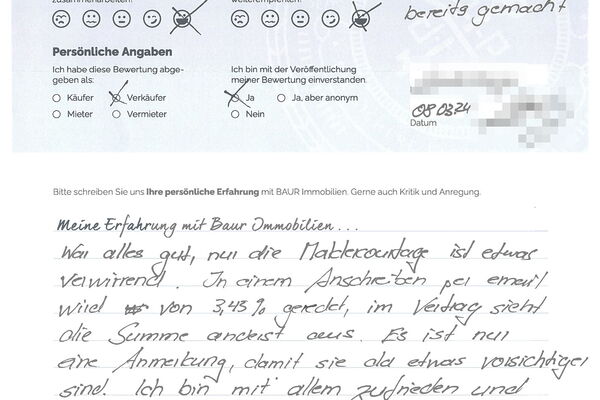 zusammenarbeiten? weiterempfehlen?
bereits gemacht
Persönliche Angaben
Ich habe diese Bewertung abge-
geben als:
Käufer Verkäufer
Mieter Vermieter
Ich bin mit der Veröffentlichung
meiner Bewertung einverstanden.
Ja Ja, aber anonym
Nein
08.03.24
Datum
Bitte schreiben Sie uns Ihre persönliche Erfahrung mit BAUR Immobilien. Gerne auch Kritik und Anregung.
Meine Erfahrung mit Baur Immobilien...
War alles gut, nur die ist etwas
verwirrend. In einem Anschreiben per email
wird von 3,43% geredet, im Vertrag sieht
die Summe anderst aus. Es ist nur
eine Anmerkung, damit sie da etwas vorsichtiger
sind. Ich bin mit allem zufrieden und